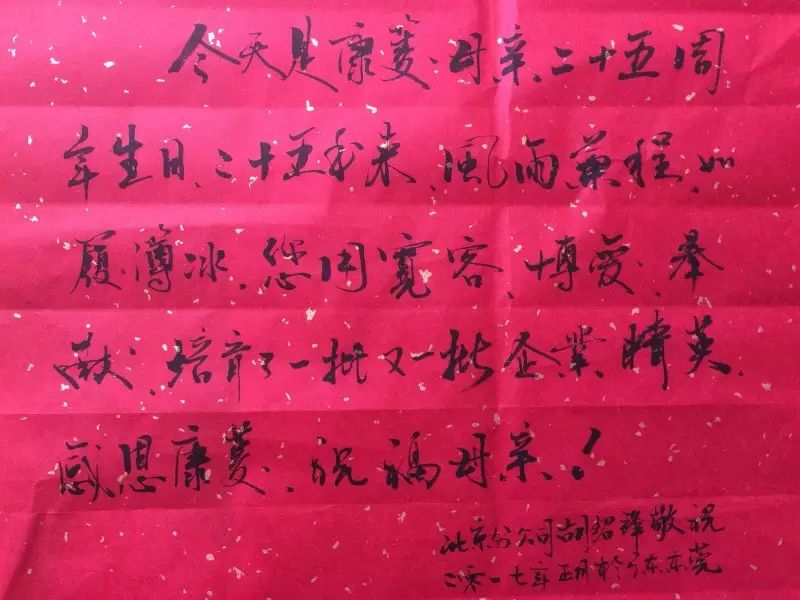 今天是康菱母亲二十五周
年生日、二十五年来、風雨兼程、如
履薄冰、您用寬容、博愛、奉
献、培育了一批又一批企業精英、
感恩康菱、祝福母亲！
北京分公司胡绍鋒敬祝
二零一七年正月於广东东莞